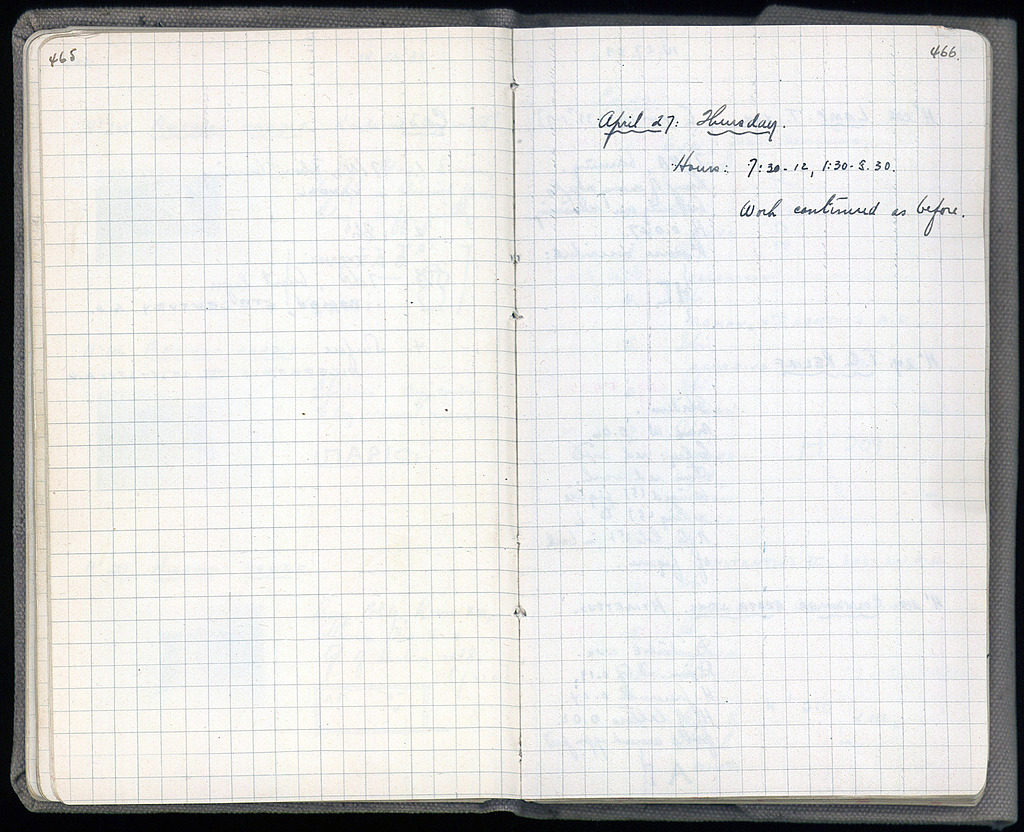 465
466.
April 27: Thursday.
Hours: 7:30-12, 1:30-5.30.
Work continued as before.